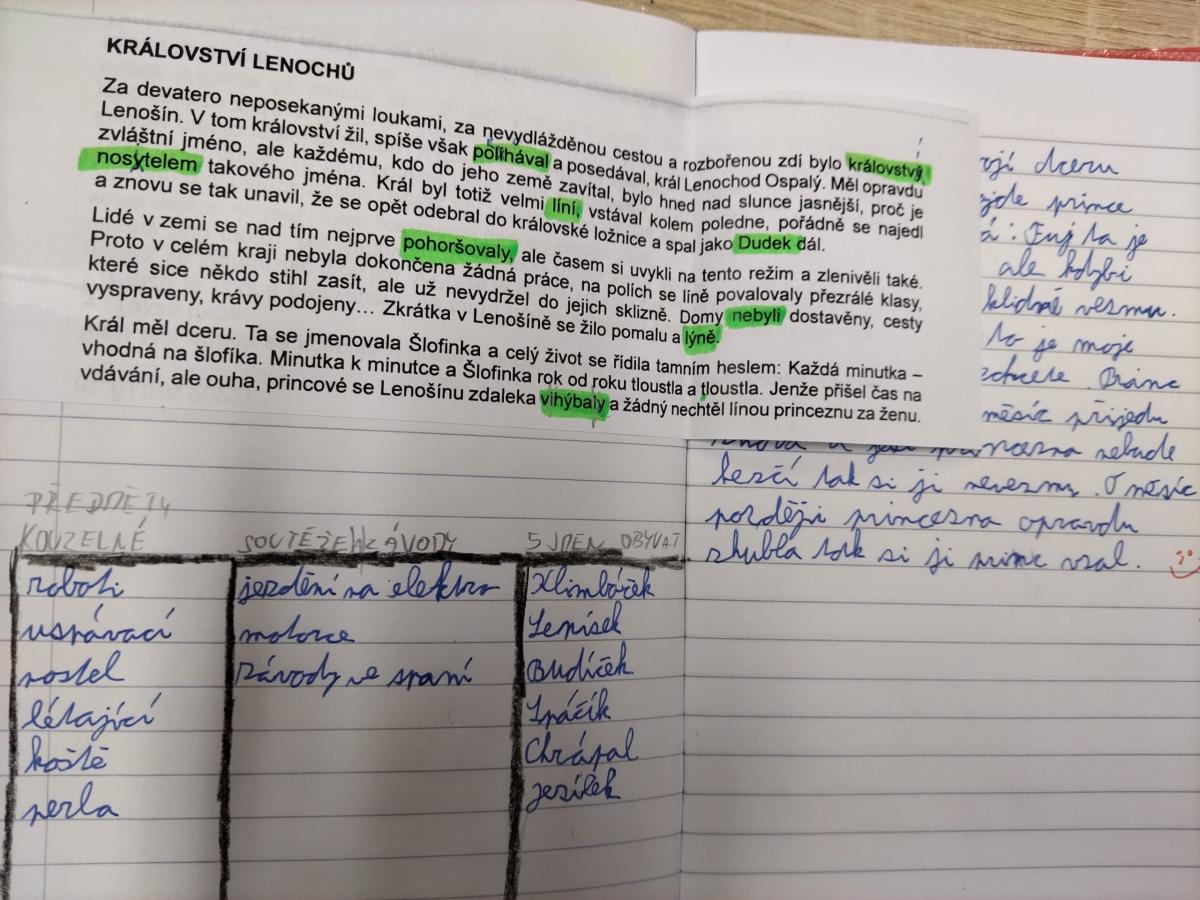 KRÁLOVSTVÍ LENOCHŮ
Za devatero neposekanými loukami, za nevydlážděnou cestou a rozbořenou zdí bylo královstvý
Lenošín. V tom království žil, spíše však polihával a posedával, král Lenochod Ospalý. Měl opravdu
zvláštní jméno, ale každému, kdo do jeho země zavítal, bylo hned nad slunce jasnější, proč je
nosytelem takového jména. Král byl totiž velmi líní, vstával kolem poledne, pořádně se najedl
a znovu se tak unavil, že se opět odebral do královské ložnice a spal jako Dudek dál.
Lidé v zemi se nad tím nejprve pohoršovaly, ale časem si uvykli na tento režim a zlenivěli také.
Proto v celém kraji nebyla dokončena žádná práce, na polích se líně povalovaly přezrálé klasy,
které sice někdo stihl zasít, ale už nevydržel do jejich sklizně. Domy nebyli dostavěny, cesty
vyspraveny, krávy podojeny… Zkrátka v Lenošíně se žilo pomalu a lýně.
Král měl dceru. Ta se jmenovala Šlofinka a celý život se řídila tamním heslem: Každá minutka –
vhodná na šlofíka. Minutka k minutce a Šlofinka rok od roku tloustla a tloustla. Jenže přišel čas na
vdávání, ale ouha, princové se Lenošínu zdaleka vihýbaly a žádný nechtěl línou princeznu za ženu.
PŘEDMĚTY
KOUZELNÉ
roboti
uspávací
postel
létající
koště
perla
SOUTĚŽE
jezdění na elektro
motorce
závody ve spaní
5 JMEN OBYVAT
Klimbáček
Lenísek
Budíček
Spáčík
Chrápal
jezílek
dceru
prince
je
ale kdybi
klidně vezmu.
to je moje
měsíc přijedu
nebude
hezčí tak si ji nevezmu. O měsíc
později princezna opravdu
zhubla tak si ji princ vzal.